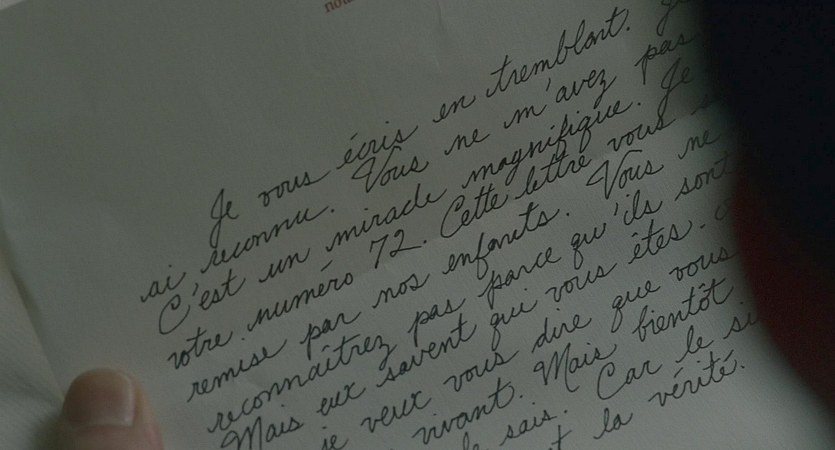 Je vous écris en tremblant.
ai reconnu. Vous ne m'avez pas
C'est un miracle magnifique. Je
votre numéro 72. Cette lettre vous
remise par nos enfants. Vous ne
reconnaîtrez pas parce qu'ils sont
Mais eux savent qui vous êtes.
je veux vous dire que vous
vivant. Mais bientôt
sais. Car le
la vérité.